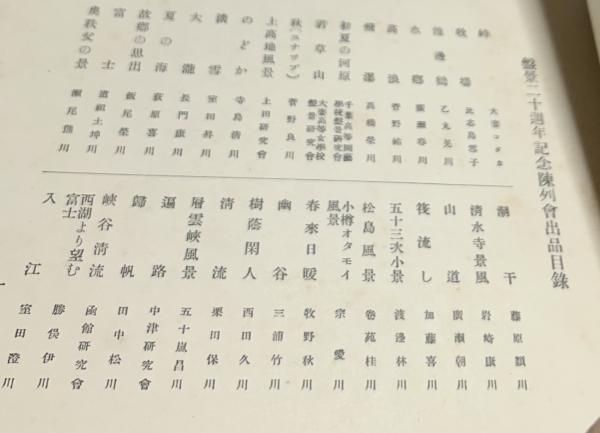 盤景二十週年記念陳列會出品目錄
峠 大妻コタカ
牧場 比志島露子
漁邊鶴 乙丸晃川
水鄉 廣瀨春川
高浪 菅野祐川
飛瀑 高橋榮川
初夏の河原 千葉高等園藝學校盤景研究會
若草山 大妻高等女學校盤景研究會
秋(スナップ) 菅野良川
上高地風景 上田研究會
のどか 寺島清川
淡雪 室田昇川
大瀧 長門康川
夏の海 萩原喜川
故鄉の思出 飯尾榮川
富士 道祖土坤川
奥秩父の景 瀨尾熊川
潮干 藤原潁川
清水寺景風 岩崎康川
山道 廣瀨朝川
筏流し 加藤喜川
五十三次小景 渡邊林川
松島風景 卷苑桂川
小樽オタモイ風景 宗愛川
春來日暖 牧野秋川
幽谷 三浦竹川
樹蔭閑人 西田久川
清流 栗田保川
層雲峽風景 五十嵐昌川
遍路 中津研究會
歸帆 田中松川
峽谷清流 函館研究會
西湖より望む富士 勝俣伊川
入江 室田澄川